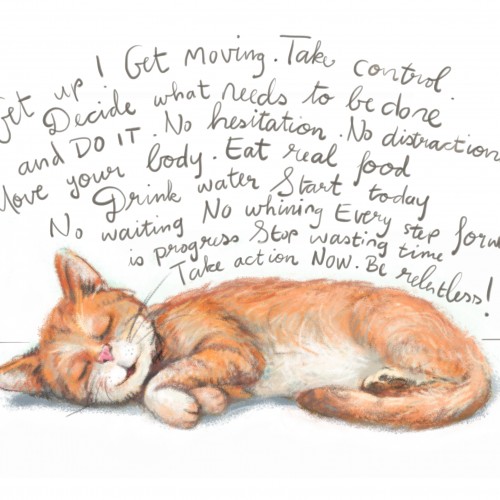 Get up! Get moving. Take control.
Decide what needs to be done
and DO IT. No hesitation. No distraction
Move your body. Eat real food
Drink water Start today
No waiting No whining Every step forw
is progress Stop wasting time
Take action NOW. Be relentless!